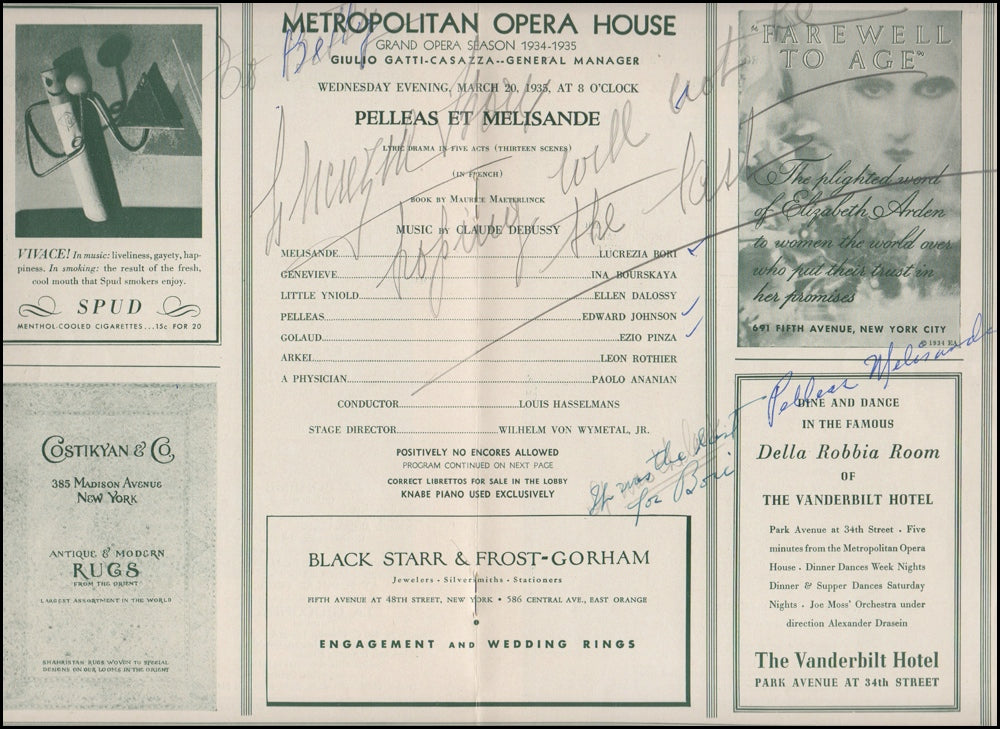 VIVACE! In music: liveliness, gayety, hap-
piness. In smoking: the result of the fresh,
cool mouth that Spud smokers enjoy.
SPUD
MENTHOL-COOLED CIGARETTES...15c FOR 20
COSTIKYAN & CO.
385 MADISON AVENUE
NEW YORK
ANTIQUE & MODERN
RUGS
FROM THE ORIENT
LARGEST ASSORTMENT IN THE WORLD
SHAHRISTAN RUGS WOVEN TO SPECIAL
DESIGNS ON OUR LOOMS IN THE ORIENT
METROPOLITAN OPERA HOUSE
GRAND OPERA SEASON 1934-1935
GIULIO GATTI-CASAZZA--GENERAL MANAGER
WEDNESDAY EVENING, MARCH 20, 1935, AT 8 O'CLOCK
PELLEAS ET MELISANDE
LYRIC DRAMA IN FIVE ACTS (THIRTEEN SCENES)
(IN FRENCH)
BOOK BY MAURICE MAETERLINCK
MUSIC BY CLAUDE DEBUSSY
MELISANDE LUCREZIA BORI
GENEVIEVE INA BOURSKAYA
LITTLE YNIOLD ELLEN DALOSSY
PELLEAS EDWARD JOHNSON
GOLAUD EZIO PINZA
ARKEL LEON ROTHIER
A PHYSICIAN PAOLO ANANIAN
CONDUCTOR LOUIS HASSELMANS
STAGE DIRECTOR WILHELM VON WYMETAL, JR.
POSITIVELY NO ENCORES ALLOWED
PROGRAM CONTINUED ON NEXT PAGE
CORRECT LIBRETTOS FOR SALE IN THE LOBBY
KNABE PIANO USED EXCLUSIVELY
To Betty
hoping
will not be
the last
Lucrezia Bori
It was the last
for Bori
Pelleas Melisande
BLACK STARR & FROST-GORHAM
Jewelers · Silversmiths · Stationers
FIFTH AVENUE AT 48TH STREET, NEW YORK • 586 CENTRAL AVE., EAST ORANGE
ENGAGEMENT AND WEDDING RINGS
"FAREWELL
TO AGE"
The plighted word
of Elizabeth Arden
to women the world over
who put their trust in
her promises
691 FIFTH AVENUE, NEW YORK CITY
© 1934 EA
DINE AND DANCE
IN THE FAMOUS
Della Robbia Room
OF
THE VANDERBILT HOTEL
Park Avenue at 34th Street · Five
minutes from the Metropolitan Opera
House · Dinner Dances Week Nights
Dinner & Supper Dances Saturday
Nights · Joe Moss' Orchestra under
direction Alexander Drasein
The Vanderbilt Hotel
PARK AVENUE AT 34th STREET